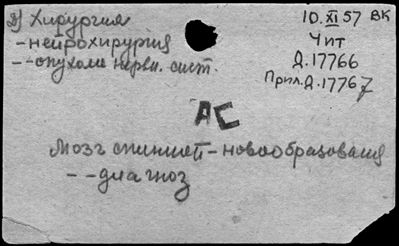 2) Хирургия
-нейрохирургия
--опухоли нервн. сист.
10.XI 57 ВК
Чит
Д.17766
Прил.Д.17767
АС
Мозг спинной-новообразования
--диагноз